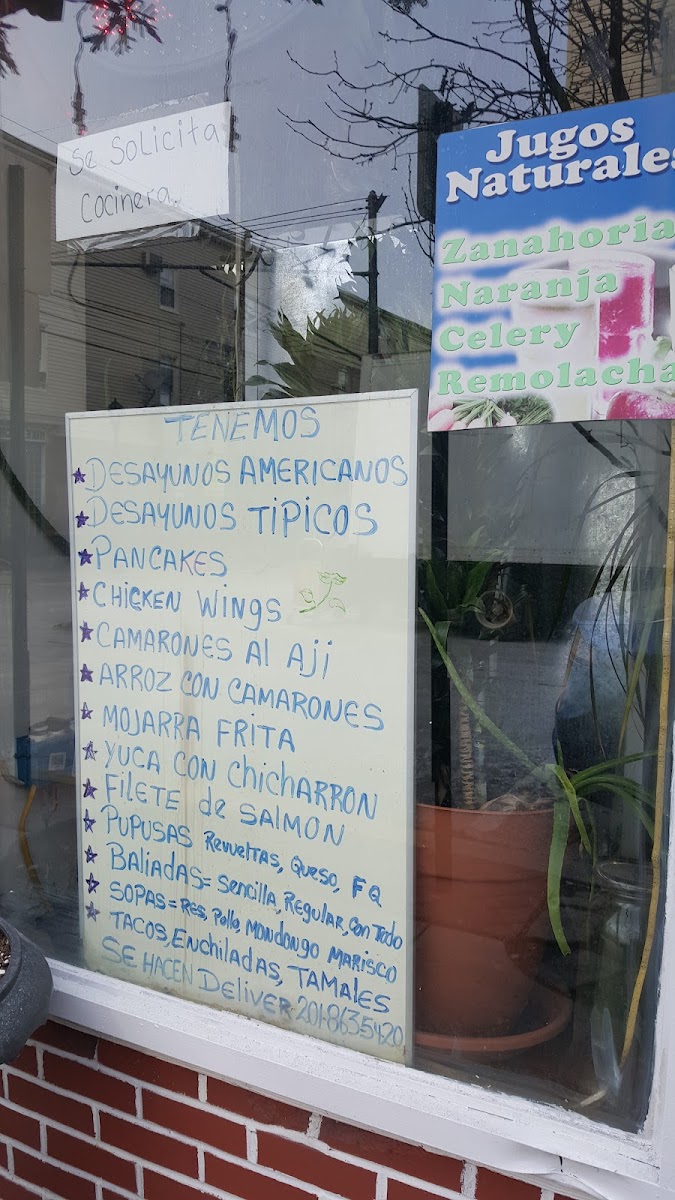 Se Solicita
Cocinera.
Jugos
Naturales
Zanahoria
Naranja
Celery
Remolacha
TENEMOS
DESAYUNOS AMERICANOS
DESAYUNOS TIPICOS
PANCAKES
CHICKEN WINGS
CAMARONES Al Aji
ARROZ CON CAMARONES
MOJARRA FRITA
YUCA CON CHICHARRON
FILETE de SALMON
PUPUSAS Revueltas, Queso, F Q
BALIADAS= Sencilla, Regular, Con Todo
SOPAS= Res, Pollo MONDONGO MARISCO
TACOS, Enchiladas, TAMALES
SE HACEN Deliver. 201-863-5420